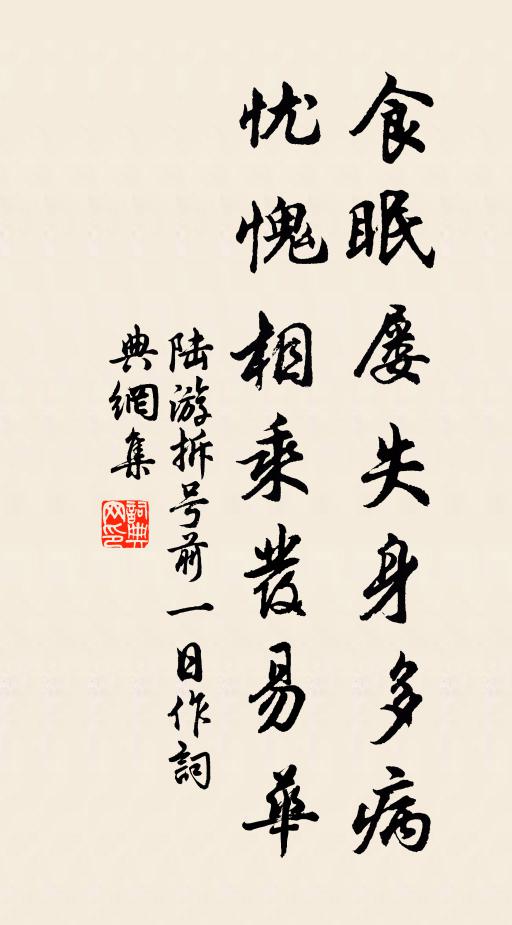 食眠屡失身多病
忧愧相乘发易华
陆游拆号前一日作词
典網集
詞典网印